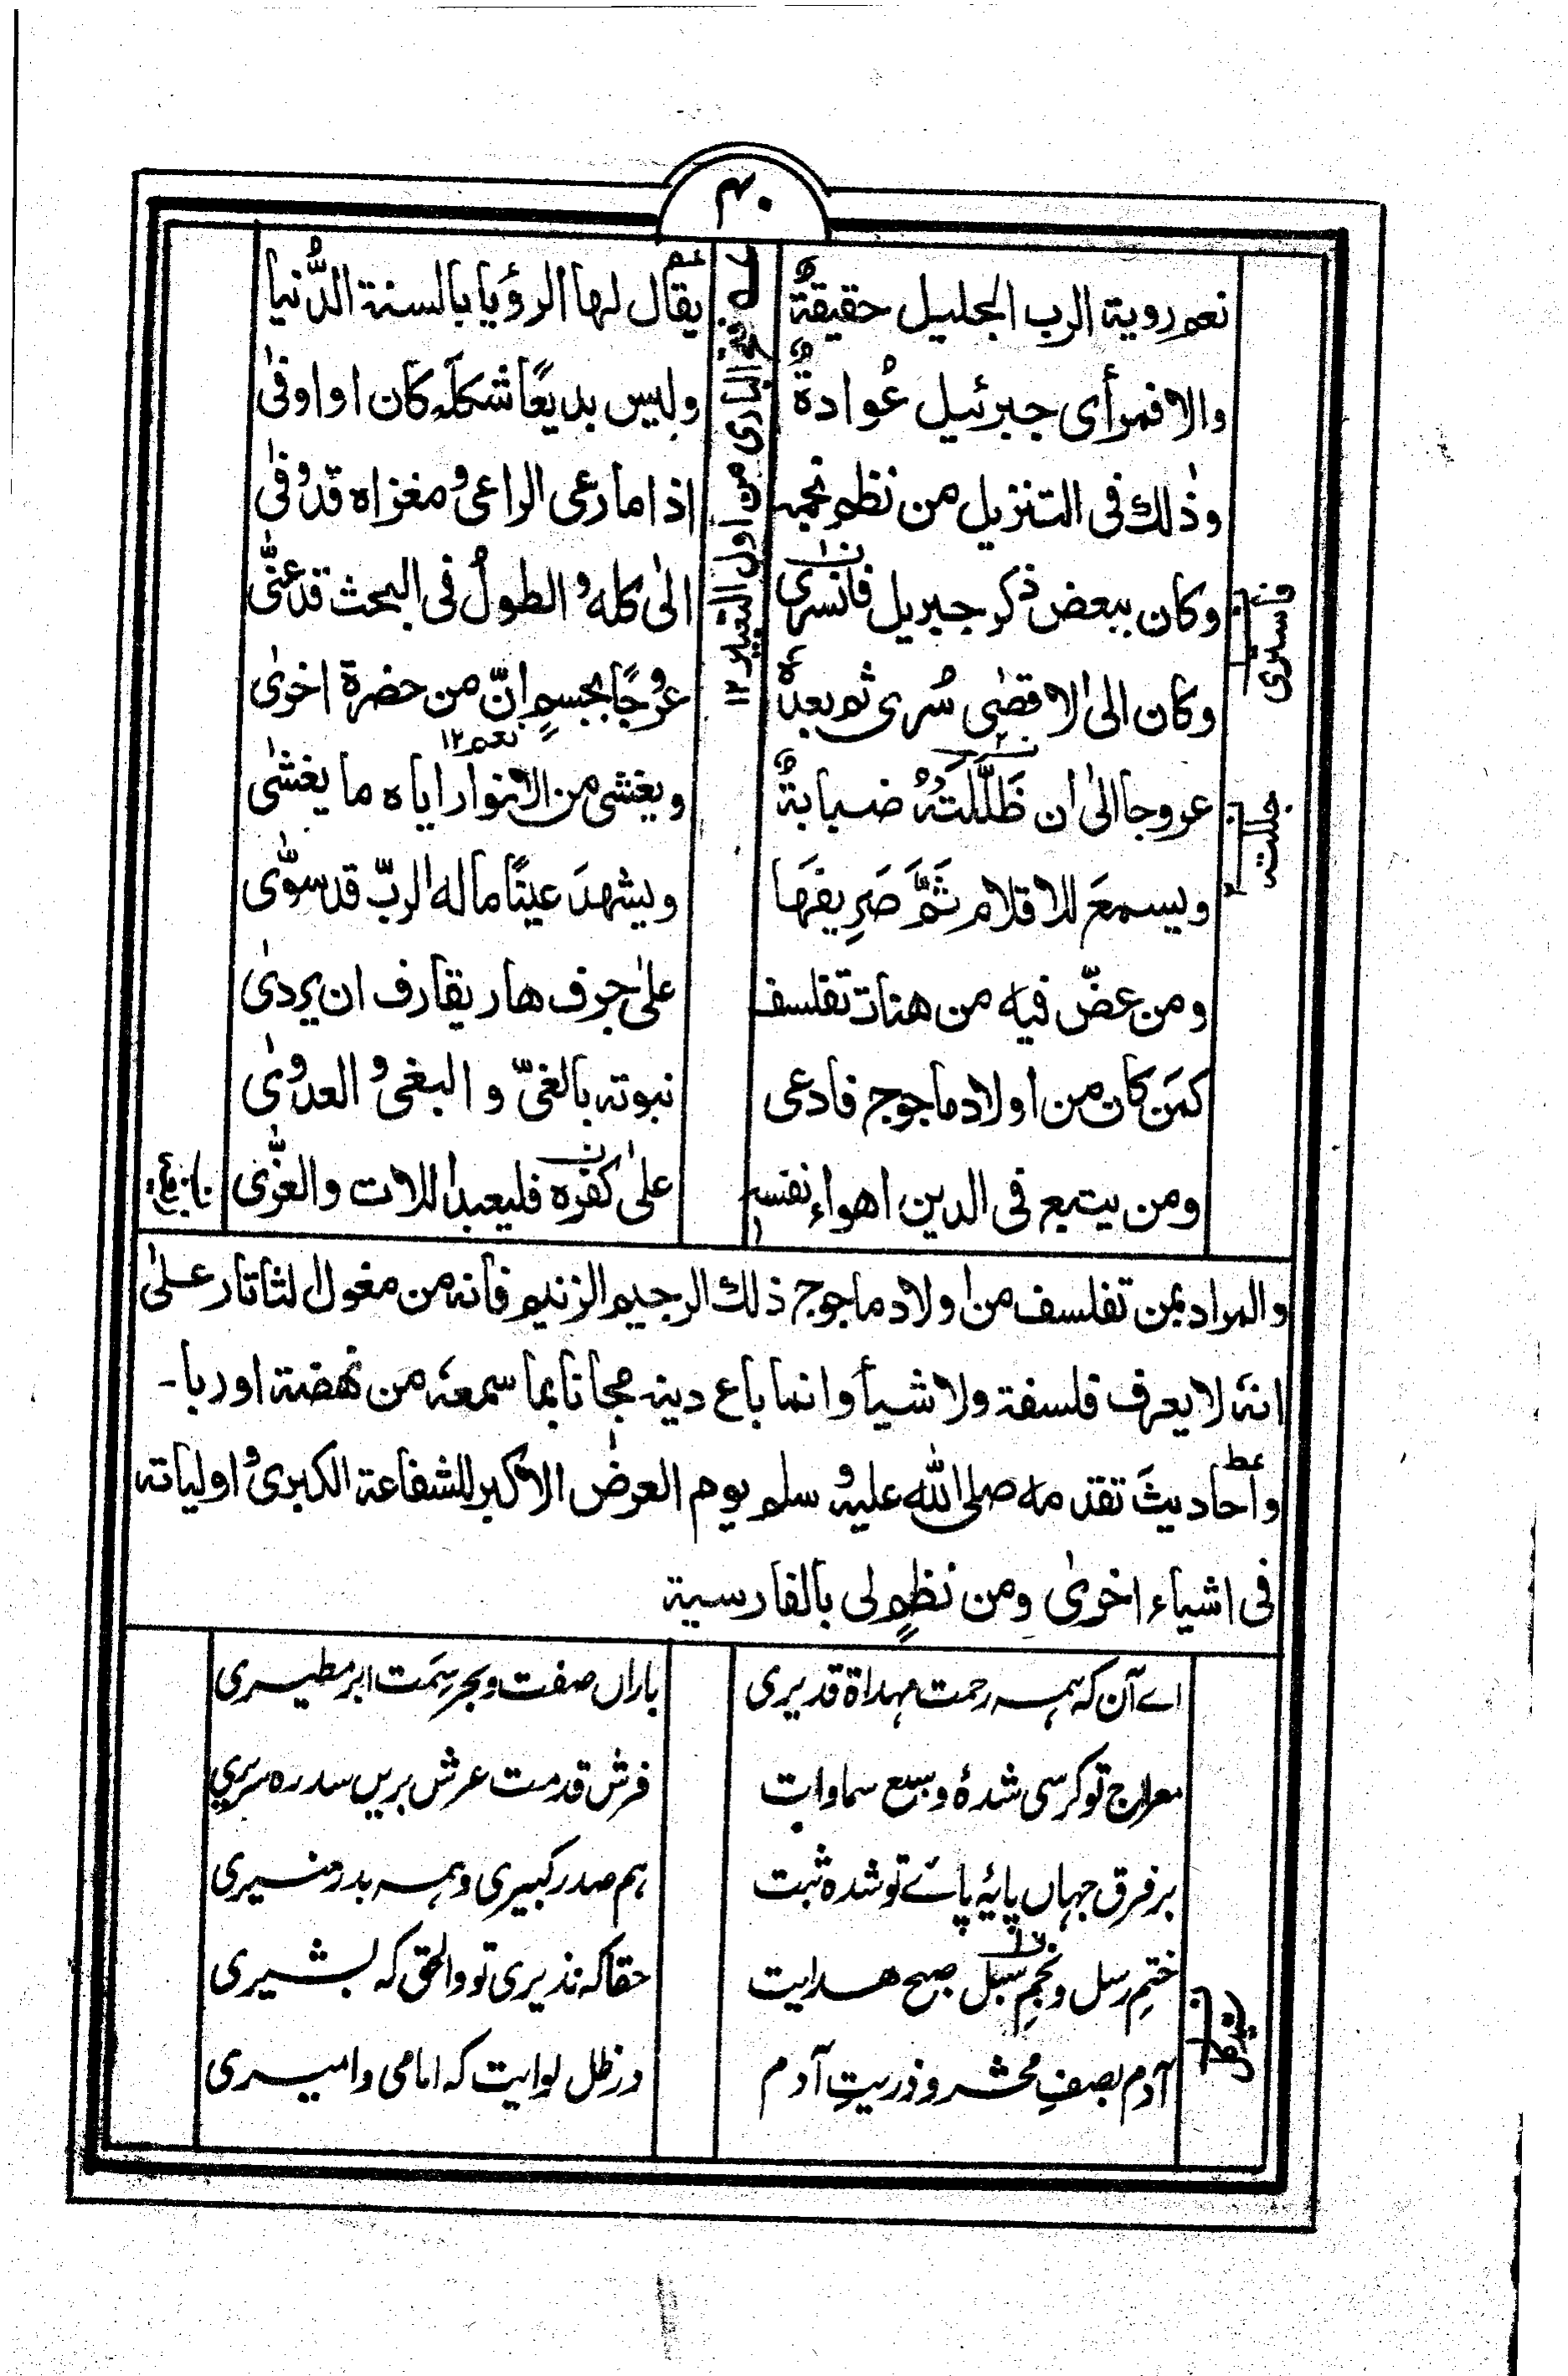 ۴۰
نعم روية الرب الجليل حقيقةٌ يقال لها الرؤيا بالسنة الدُّنيا
والا فمرأى جبرئيل عُوادةٌ وليس بديعًا شكله كان او اوفىٰ
وذٰلك فى التنزيل من نظم نجمه اذا ما رعى الراعى و مغزاه قد وفىٰ
وكان ببعض ذكر جبريل فانسرى الىٰ كله و الطولُ فى البحث قد عنّٰى
وكان الىٰ الاقصٰى سُرى ثم بعدهٗ عروجًا بجسمٍ انّ من حضرة اخرىٰ
نعم ١٢
عروجا الىٰ ان ظَلَّلَتْهُ ضبابةٌ ويغشى من الانوار اياه ما يغشىٰ
ويسمعَ للاقلام ثَمَّ صَرِيفَهَا ويشهدَ عينًا ما له الربّ قد سوّٰى
ومن عضّ فيه من هنات تفلسف علىٰ جرف هار يقارف ان يردىٰ
كمَن كان من اولاد ماجوج فادعى نبوته بالغىّ و البغى و العدوىٰ
ومن يتبع فى الدين اهواء نفسه علىٰ كفره فليعبد اللات والعزّٰى
فتح البارى من اول التعبير ١٢
فاسرى
جللته
والمراد بمن تفلسف من اولاد ماجوج ذلك الرجيم الزنيم فانه من مغول الثاتار علىٰ
انهٗ لا يعرف فلسفة ولا شيأ وانما باع دينه مجانا بما سمعهٗ من نهضة اوربا۔
واحاديثَ تقدمه صلى الله عليه و سلم يوم العرض الاكبر للشفاعة الكبرىٰ و اولياته
فى اشياء اخرىٰ ومن نظمٍ لى بالفارسية
اے آن که همه رحمت مهداة قدیری باراں صفت و بحر سمت ابر مطیری
معراج تو کرسی شدهٔ و سبع سماوات فرش قدمت عرش بریں سدره سریری
بر فرق جہاں پایهٔ پائے تو شده ثبت هم صدر کبیری و همه بدر منیری
ختمِ رسل و نجمِ سبل صبح هدایت حقا که نذیری تو و الحق که بشیری
آدم بصفِ محشر و ذریتِ آدم در ظل لوایت که امامی و امیری